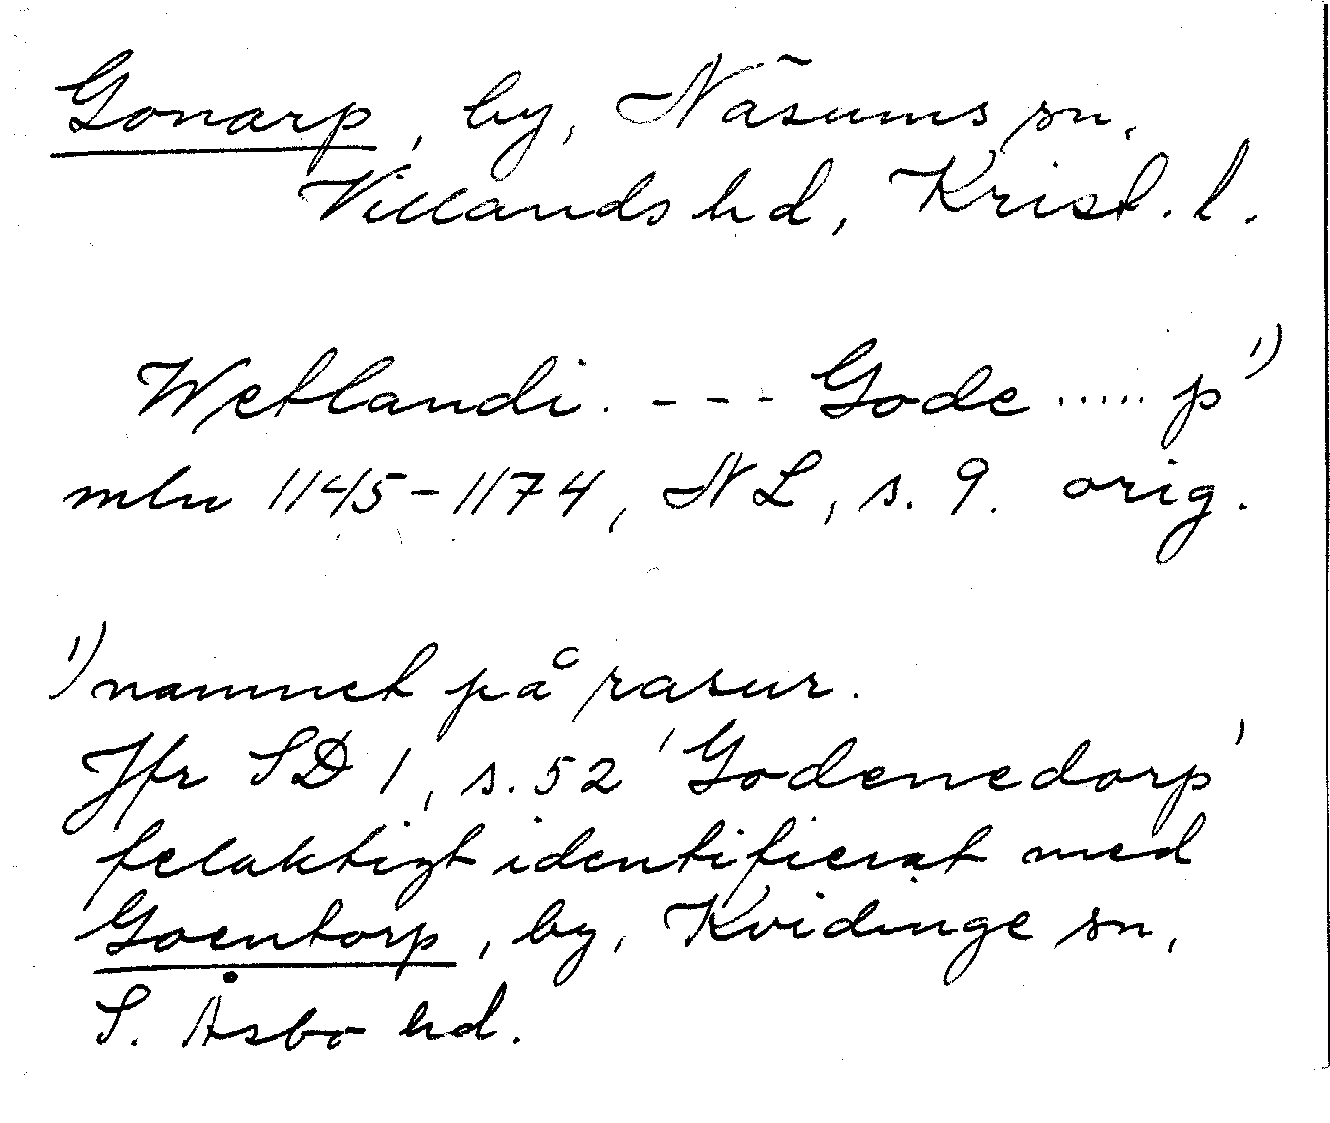 Gonarp, by, Näsums sn,
Villands hd, Krist. l.
Wetlandi. - - - Gode ..... p 1)
mln 1145-1174, NL, s. 9. orig.
1) namnet på rasur.
Jfr SD 1, s. 52 'Godenedorp'
felaktigt identifierat med
Goentorp, by, Kvidinge sn,
S. Åsbo hd.